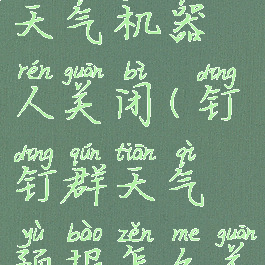 天气机器
rén guān bì dīng
人关闭(钉
dīng qún tiān qì
钉群天气
yù bào zěn me guān
预报怎么关